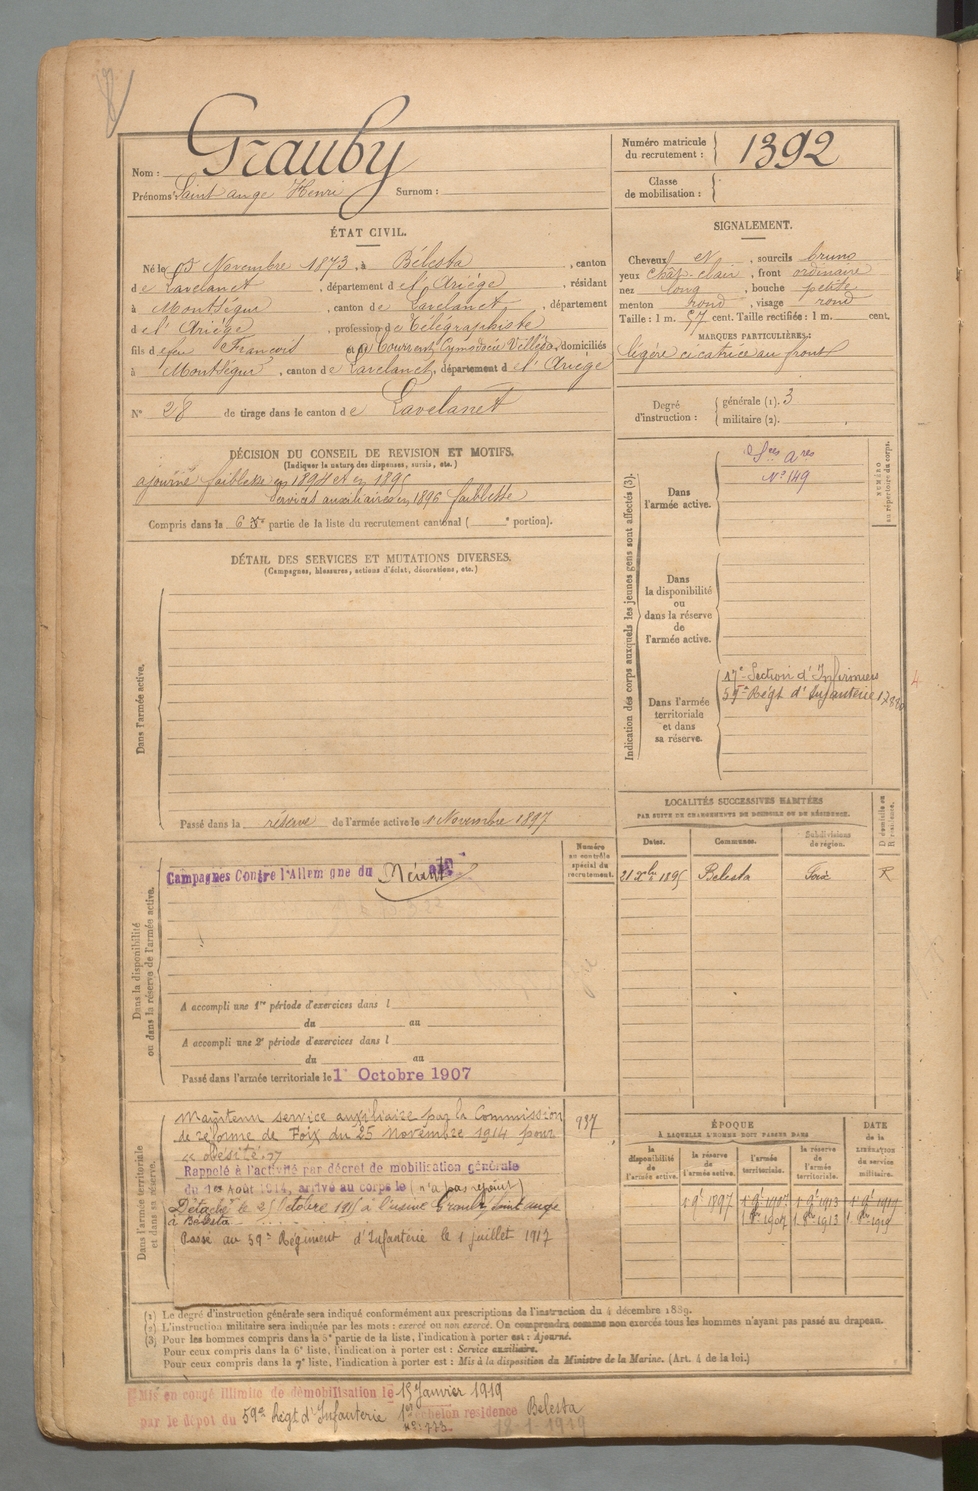 Nom : Grauby
Prénoms : Saint ange Henri Surnom :
Numéro matricule du recrutement : 1392
Classe de mobilisation :
ÉTAT CIVIL.
Né le 03 Novembre 1873, à Bélesta, canton
de Lavelanet, département de l'Ariège, résidant
à Montségur, canton de Lavelanet, département
de l'Ariège, profession de télégraphiste
fils de feu François et de Courrent Cymodocée Velléda, domiciliés
à Montségur, canton de Lavelanet, département de l'Ariège
N° 28 de tirage dans le canton de Lavelanet
SIGNALEMENT.
Cheveux et, sourcils bruns
yeux chât-clair, front ordinaire
nez long, bouche petite
menton rond, visage rond
Taille : 1 m. 57 cent. Taille rectifiée : 1 m. cent.
MARQUES PARTICULIÈRES :
légère cicatrice au front
Degré d'instruction : générale (1). 3
militaire (2).
DÉCISION DU CONSEIL DE REVISION ET MOTIFS.
(Indiquer la nature des dispenses, sursis, etc.)
ajourné faiblesse en 1894 et en 1895
services auxiliaires en 1896 faiblesse
Compris dans la 6e partie de la liste du recrutement cantonal ( e portion).
DÉTAIL DES SERVICES ET MUTATIONS DIVERSES.
(Campagnes, blessures, actions d'éclat, décorations, etc.)
Dans l'armée active.
Passé dans la réserve de l'armée active le 1 Novembre 1897
Indication des corps auxquels les jeunes gens sont affectés (3).
NUMÉRO au répertoire du corps.
Dans l'armée active.
Sces Ares
N° 149
Dans la disponibilité ou dans la réserve de l'armée active.
Dans l'armée territoriale et dans sa réserve.
17e Section d'Infirmiers
59e Régt d'Infanterie
4
LOCALITÉS SUCCESSIVES HABITÉES
PAR SUITE DE CHANGEMENTS DE DOMICILE OU DE RÉSIDENCE.
Dates. Communes. Subdivisions de région. D domicile ou R résidence.
21 Xbre 1895 Bélesta Foix R
Dans la disponibilité ou dans la réserve de l'armée active.
Numéro au contrôle spécial du recrutement.
Campagnes Contre l'Allemagne du Néant
A accompli une 1re période d'exercices dans l
du au
A accompli une 2e période d'exercices dans l
du au
Passé dans l'armée territoriale le 1er Octobre 1907
Dans l'armée territoriale et dans sa réserve.
Maintenu service auxiliaire par la Commission
de réforme de Foix du 25 novembre 1914 pour
obésité.
937
Rappelé à l'activité par décret de mobilisation générale
du 1er Août 1914, arrivé au corps le (n'a pas rejoint)
Détaché le 25 Octobre 1915 à l'usine Grauby Saint ange
à Bélesta
Passé au 59e Régiment d'Infanterie le 1 juillet 1917
ÉPOQUE
À LAQUELLE L'HOMME DOIT PASSER DANS
la disponibilité de l'armée active. la réserve de l'armée active. l'armée territoriale. la réserve de l'armée territoriale.
DATE de la LIBÉRATION du service militaire.
1 9e 1897 1 9e 1907 1 9e 1913 1 9e 1919
1 8re 1907 1 8re 1913 1 8re 1919
(1) Le degré d'instruction générale sera indiqué conformément aux prescriptions de l'instruction du 4 décembre 1889.
(2) L'instruction militaire sera indiquée par les mots : exercé ou non exercé. On comprendra comme non exercés tous les hommes n'ayant pas passé au drapeau.
(3) Pour les hommes compris dans la 5e partie de la liste, l'indication à porter est : Ajourné.
Pour ceux compris dans la 6e liste, l'indication à porter est : Service auxiliaire.
Pour ceux compris dans la 7e liste, l'indication à porter est : Mis à la disposition du Ministre de la Marine. (Art. 4 de la loi.)
Mis en congé illimité de démobilisation le 15 Janvier 1919
par le dépôt du 59e Régt d'Infanterie 1er échelon résidence Bélesta
N° 773. 18-1-1919